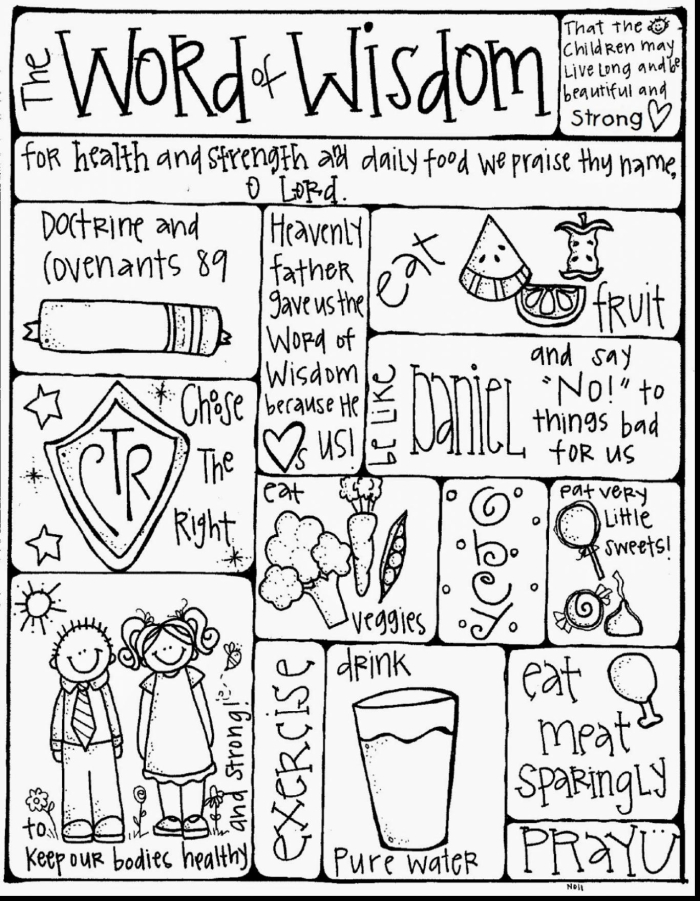 The Word of Wisdom
That the
Children may
Live Long and be
beautiful and
Strong
for health and strength and daily food we praise thy name,
O Lord.
Doctrine and
Covenants 89
Heavenly
father
gave us the
Word of
Wisdom
because He
s us!
eat
fruit
be like
Daniel
and say
"No!" to
things bad
for us
CTR
Choose
The
Right
eat
veggies
yoga
eat very
Little
sweets!
to
keep our bodies healthy
and strong!
exercise
drink
Pure water
eat
meat
sparingly
Pray